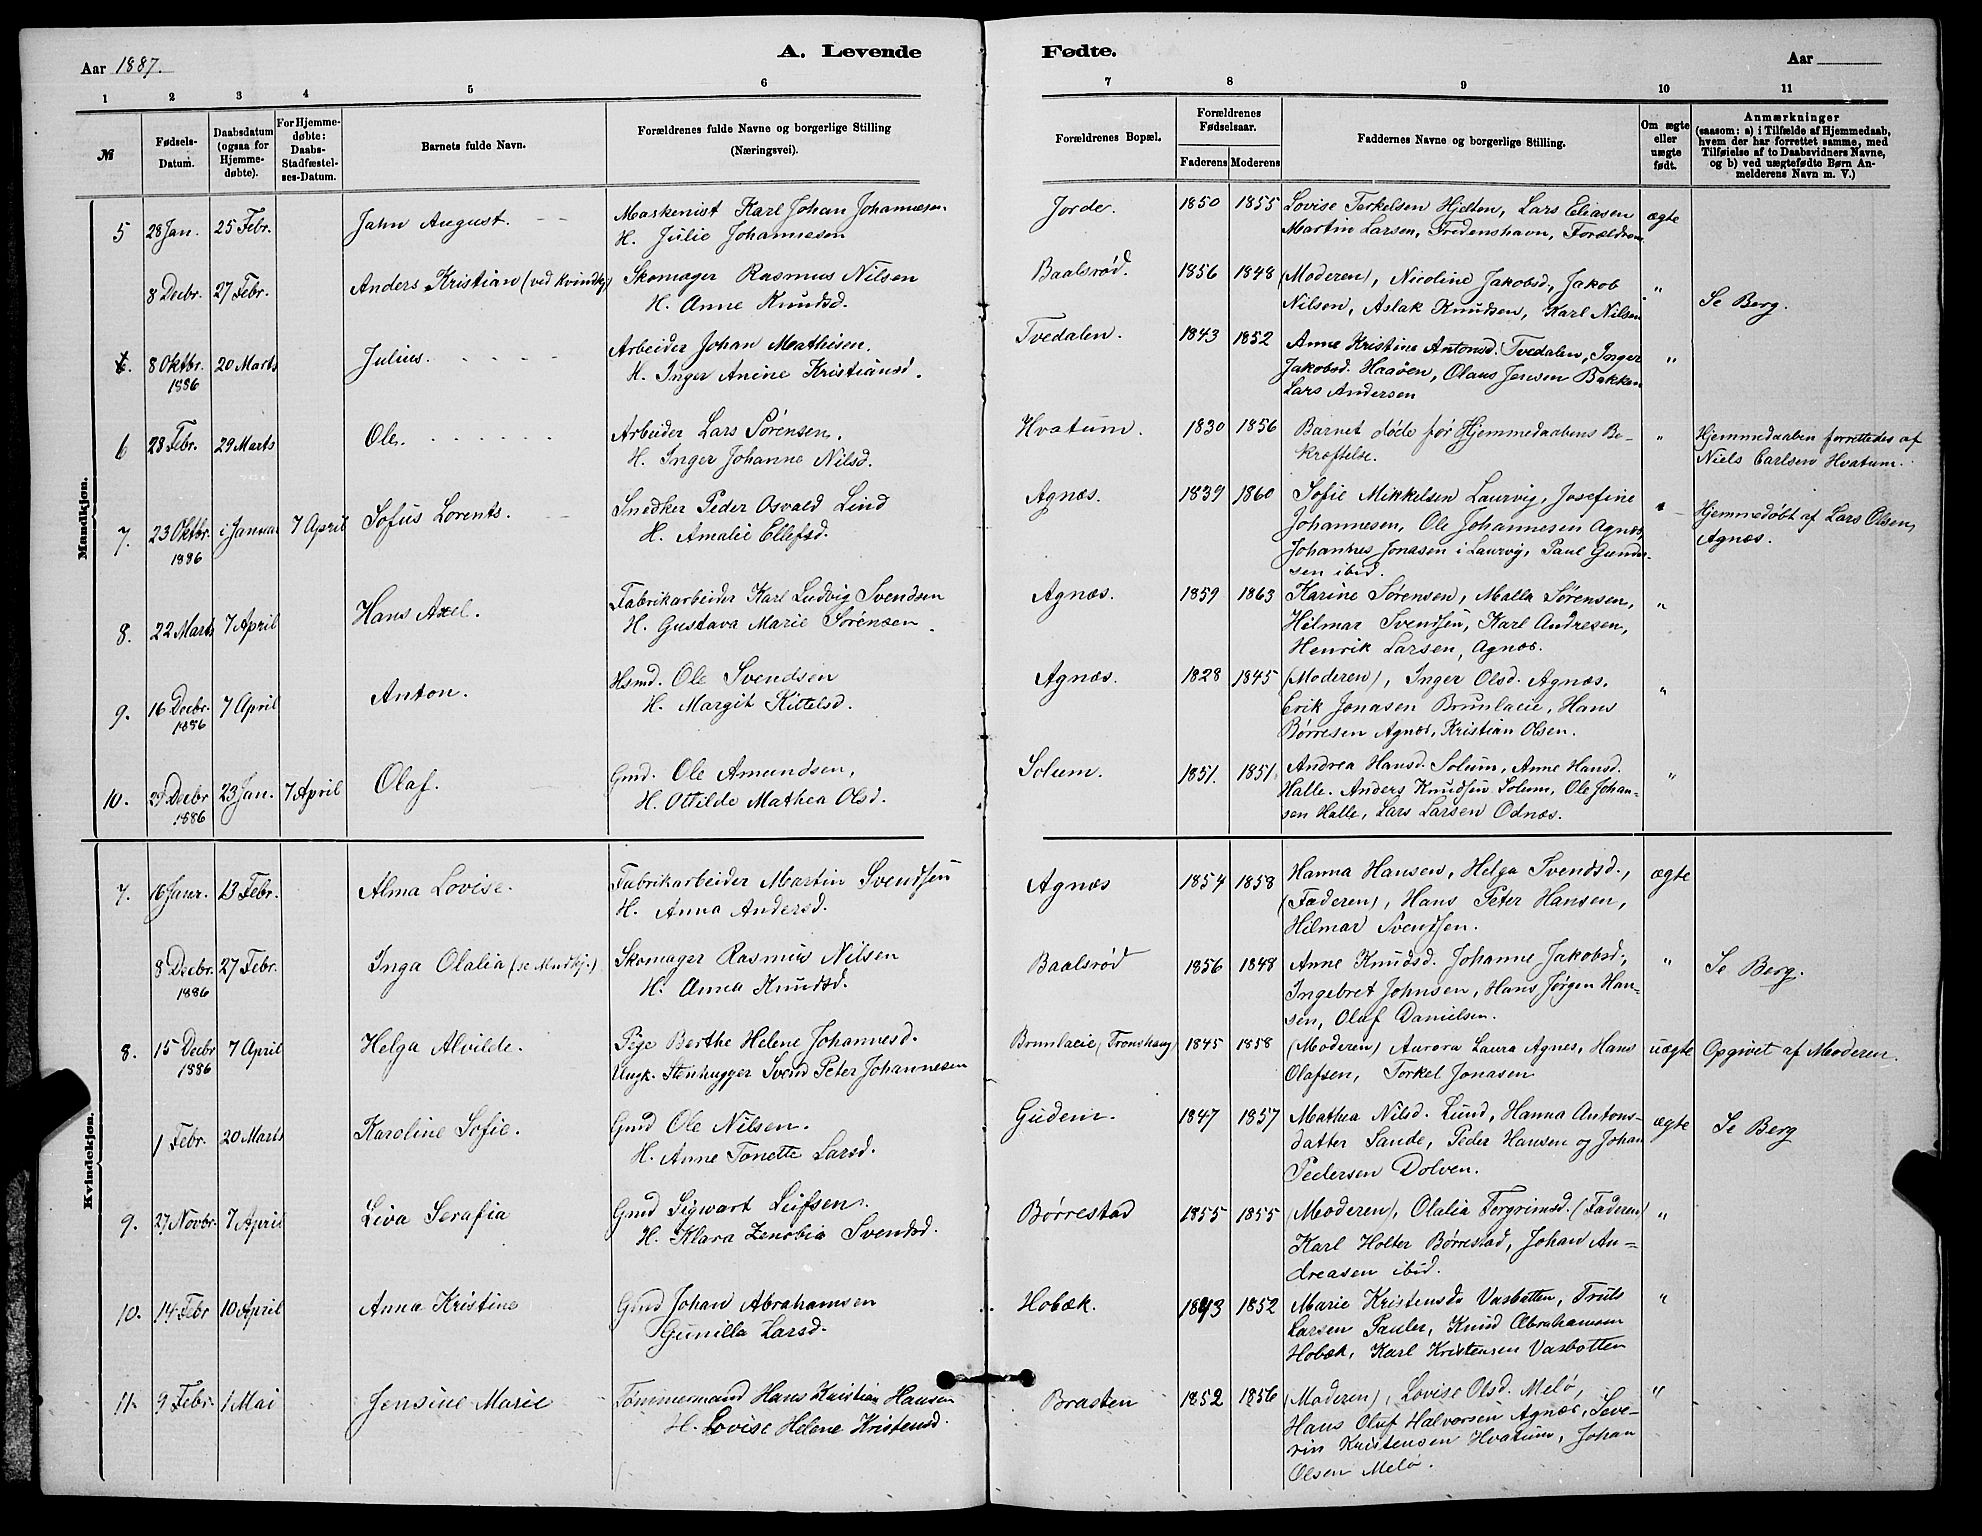 Aar 1887.
A. Levende Fødte.
Aar
1 2 3 4 5 6 7 8 9 10 11
№
Fødsels-Datum.
Daabsdatum (ogsaa for Hjemme-døbte).
For Hjemme-døbte: Daabs-Stadfæstel-ses-Datum.
Barnets fulde Navn.
Forældrenes fulde Navne og borgerlige Stilling (Næringsvei).
Forældrenes Bopæl.
Forældrenes Fødselsaar.
Faderens Moderens
Faddernes Navne og borgerlige Stilling.
Om ægte eller uægte født.
Anmærkninger
(saasom: a) i Tilfælde af Hjemmedaab, hvem der har forrettet samme, med Tilføielse af to Daabsvidners Navne, og b) ved uægtefødte Børn An-melderens Navn m. V.)
Mandkjøn.
5 28 Jan. 25 Febr. Jahn August. Maskenist Karl Johan Johannesen. Jorde. 1850 1855 Lovise Terkelsen Hjelten, Lars Eliasen ægte
H. Julie Johannesen Martin Larsen, Fredenshavn, Forældrene
8 Decbr. 27 Febr. Anders Kristian (ved Kvindkj) Skomager Rasmus Nilsen Baalsrød. 1856 1848 (Moderen), Nicoline Jakobsd, Jakob " Se Berg.
H. Anne Knudsd. Nilsen, Aslak Knudsen, Karl Nilsen
6. 8 Oktbr. 1886 20 Marts Julius. Arbeider Johan Mathisen. Tvedalen. 1843 1852 Anne Kristine Antonsd. Tvedalen, Inger "
H. Inger Anine Kristiansd. Jakobsd. Haaøen, Olaus Jensen Bakken
Lars Andersen
6 28 Febr. 29 Marts Ole. Arbeider Lars Sørensen. Hvatum. 1830 1856 Barnet døde før Hjemmedaabens Be- " Hjemmedaaben forrettedes af
H. Inger Johanne Nilsd. kræftelse. Niels Carlsen Hvatum.
7. 23 Oktbr. 1886 i Januar 7 April Sofus Lorents. Snedker Peder Osvald Lind Agnæs. 1839 1860 Sofie Mikkelsen Laurvig, Josefine " Hjemmedøbt af Lars Olsen,
H. Amalie Ellefsd. Johannesen, Ole Johannesen Agnæs, Agnæs.
Johannes Jonasen i Laurvig, Paul Gunder-
sen ibid.
8. 22 Marts 7 April Hans Axel. Fabrikarbeider Karl Ludvig Svendsen Agnæs. 1859 1863 Karine Sørensen, Malla Sørensen, "
H. Gustava Marie Sørensen. Hilmar Svendsen, Karl Andresen,
Henrik Larsen, Agnæs.
9. 16 Decbr. 1886 7 April Anton. Hsmd. Ole Svendsen Agnæs. 1828 1845 (Moderen), Inger Olsd. Agnæs. "
H. Margit Kittelsd. Erik Jonasen Brunlaeie, Hans
Børresen Agnæs, Kristian Olsen.
10. 29 Decbr 1886 23 Jan. 7 April Olaf. Gmd. Ole Amundsen, Solum. 1851. 1851 Andrea Hansd. Solum, Anne Hansd. "
H. Ottilde Mathea Olsd. Halle. Anders Knudsen Solum, Ole Johan-
sen Halle, Lars Larsen Odnæs.
Kvindekjøn.
7. 16 Janr. 13 Febr. Alma Lovise. Fabrikarbeider Martin Svendsen Agnæs 1854 1858 Hanna Hansen, Helga Svendsd., ægte
H. Anna Andersd. (Faderen), Hans Peter Hansen,
Hilmar Svendsen.
8 Decbr. 1886 27 Febr. Inga Olalia (se Mndkj.) Skomager Rasmus Nilsen Baalsrød 1856 1848 Anne Knudsd. Johanne Jakobsd., " Se Berg.
H. Anna Knudsd. Ingebret Johnsen, Hans Jørgen Han-
sen, Olaf Danielsen.
8. 15 Decbr 1886 7 April Helga Alvilde. Pige Berthe Helene Johannesd. Brunlaeie (Tronshaug) 1845 1858 (Moderen) Aurora Laura Agnes, Hans uægte Opgivet af Moderen.
Ungk. Stenhugger Svend Peter Johannesen Olafsen, Torkel Jonasen
1 Febr. 20 Marts Karoline Sofie. Gmd Ole Nilsen. Gudem. 1847 1857 Mathea Nilsd. Lund, Hanna Antons- ægte Se Berg
H. Anne Tonette Larsd. datter Sande, Peder Hansen og Johan
Pedersen Dolven.
9. 27 Novbr. 7 April Liva Serafia Gmd Sigwart Leifsen. Børrestad 1855 1855 (Moderen), Olalia Torgrimsd. (Faderen) "
H. Klara Zenobia Svendsd. Karl Holter Børrestad, Johan An-
dreasen ibid.
10. 14 Febr 10 April Anna Kristine Gmd Johan Abrahamsen Hobæk. 1843 1852 Marie Kristensd. Vasbotten, Truls "
Gunilla Larsd. Larsen Pauler, Knud Abrahamsen
Hobæk, Karl Kristensen Vasbotten
11. 9 Febr. 1 Mai Jensine Marie Tømmermand Hans Kristian Hansen Brasten 1852 1856 (Moderen), Lovise Olsd. Melø, "
H. Lovise Helene Kristensd. Hans Oluf Halvorsen Agnæs, Seve-
rin Kristensen Hvatum, Johan
Olsen Melø.